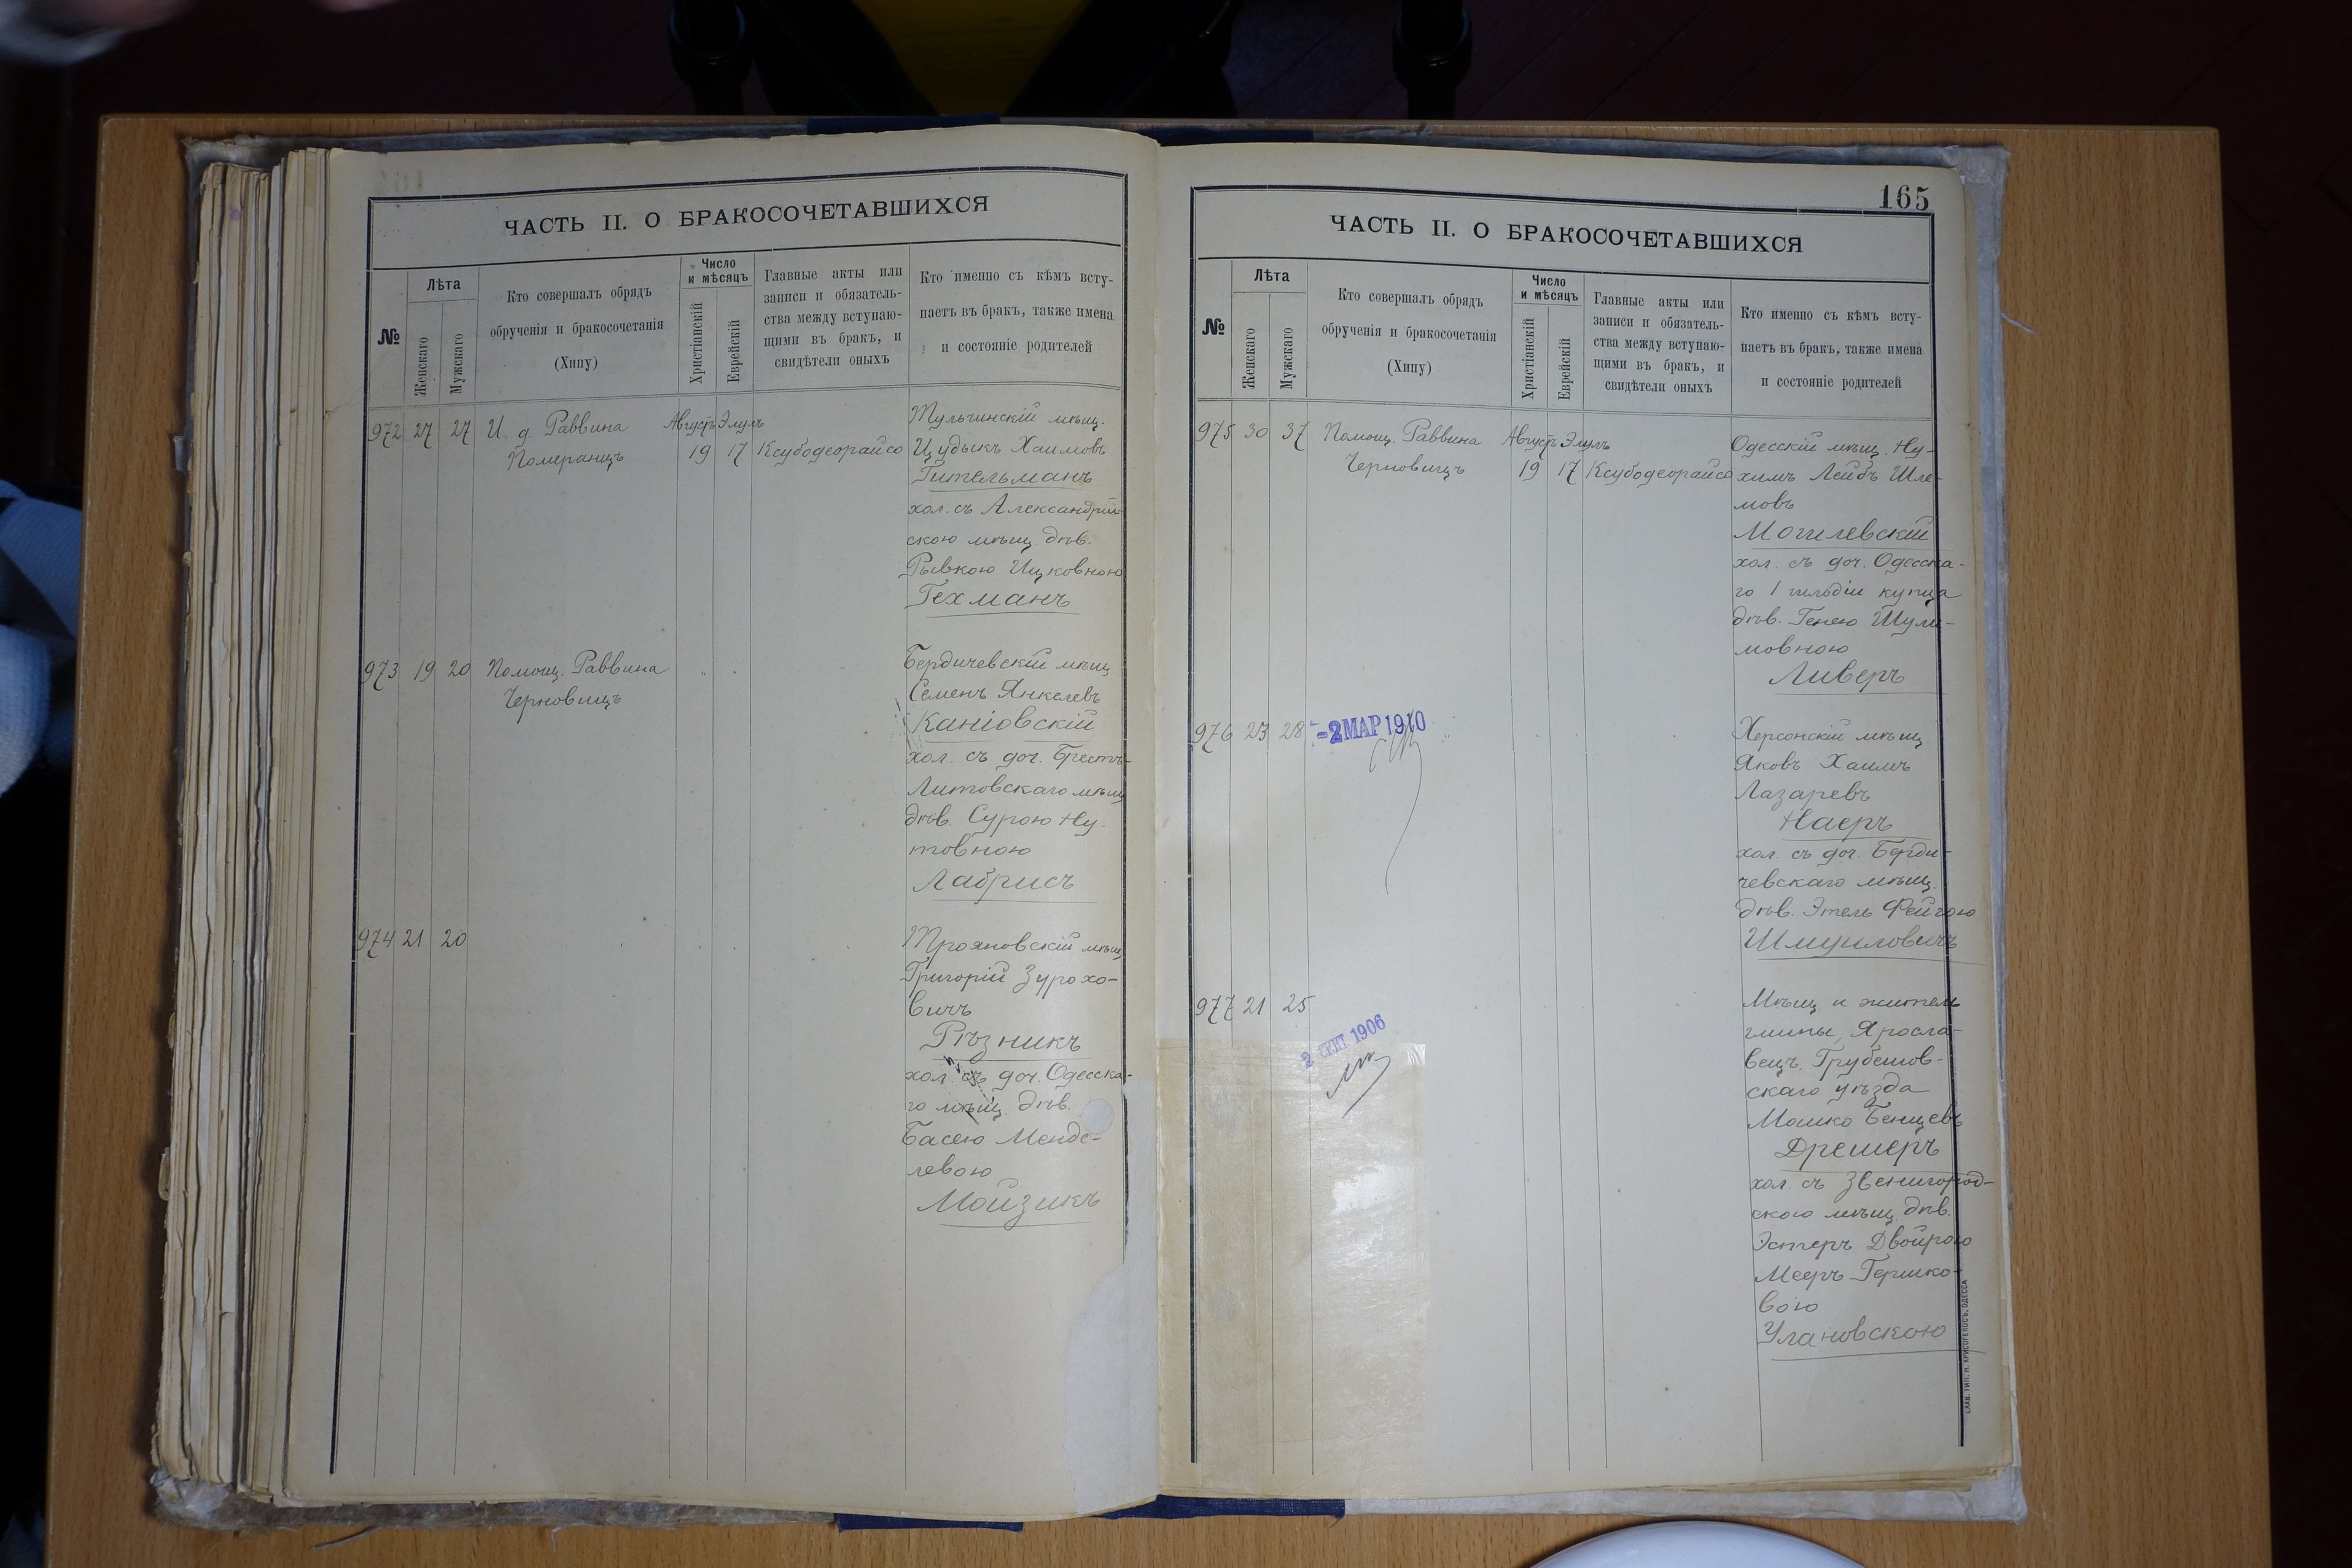 ЧАСТЬ II. О БРАКОСОЧЕТАВШИХСЯ
№
Лѣта
Женскаго
Мужскаго
Кто совершалъ обрядъ
обрученія и бракосочетанія
(Хипу)
Число
и мѣсяцъ
Христіанскій
Еврейскій
Главные акты или
записи и обязатель-
ства между вступаю-
щими въ бракъ, и
свидѣтели оныхъ
Кто именно съ кѣмъ всту-
паетъ въ бракъ, также имена
и состояніе родителей
972 27 27 И. д. Раввина
Померанцъ
Августъ Элулъ
19 17 Ксубодеорайсо
Тульчинскій мѣщ.
Цудыкъ Хаимовъ
Гительманъ
хол. съ Александрій-
скою мѣщ. дѣв.
Рывкою Ицковною
Гехманъ
973 19 20 Помощ. Раввина
Черновицъ
Бердичевскій мѣщ
Семенъ Янкелевъ
Каніовскій
хол. съ доч. Брестъ-
Литовскаго мѣщ
дѣв. Сурою Ну-
товною
Лабрисъ
974 21 20
Трояновскій мѣщ
Григорій Зурохо-
вичъ
Рѣзникъ
хол. съ доч. Одесска-
го мѣщ. дѣв.
Басею Менде-
левою
Мойзикъ
165
ЧАСТЬ II. О БРАКОСОЧЕТАВШИХСЯ
№
Лѣта
Женскаго
Мужскаго
Кто совершалъ обрядъ
обрученія и бракосочетанія
(Хипу)
Число
и мѣсяцъ
Христіанскій
Еврейскій
Главные акты или
записи и обязатель-
ства между вступаю-
щими въ бракъ, и
свидѣтели оныхъ
Кто именно съ кѣмъ всту-
паетъ въ бракъ, также имена
и состояніе родителей
975 30 37 Помощ. Раввина
Черновицъ
Августъ Элулъ
19 17 Ксубодеорайсо
Одесскій мѣщ. Ну-
химъ Лейбъ Шле-
мовъ
Могилевскій
хол. съ доч. Одесска-
го 1 гильдіи купца
дѣв. Генею Шули-
мовною
Ливеръ
976 23 28
-2 МАР 1910
Херсонскій мѣщ
Яковъ Хаимъ
Лазаревъ
Наеръ
хол. съ доч. Берди-
чевскаго мѣщ.
дѣв. Этель Фейгою
Шмуиловичъ
977 21 25
2 СЕНТ 1906
Мѣщ. и жители
гмины, Яросла-
вецъ, Грубешов-
скаго уѣзда
Мошко Бенцевъ
Дрешеръ
хол. съ Звенигород-
скою мѣщ. дѣв.
Эстеръ Двойрою
Мееръ-Гершко-
вою
Улановскою
СЛАВ. ТИП. Н. ХРИСОГЕЛОСЪ, ОДЕССА